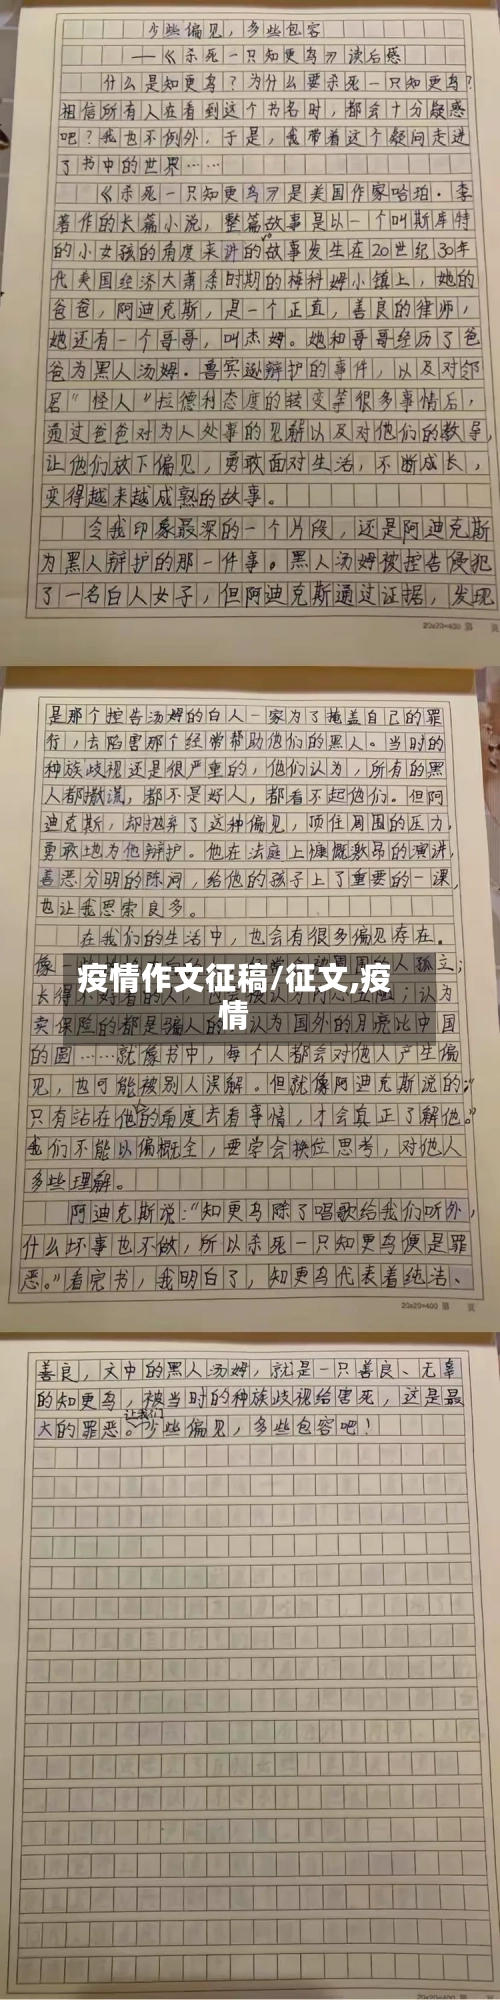 少些偏见，多些包容
——《杀死一只知更鸟》读后感
什么是知更鸟？为什么要杀死一只知更鸟？
相信所有人在看到这个书名时，都会十分疑惑
吧？我也不例外，于是，我带着这个疑问走进
了书中的世界……
《杀死一只知更鸟》是美国作家哈珀·李
著作的长篇小说，整篇故事是以一个叫斯库特
的小女孩的角度来讲的故事发生在20世纪30年
代美国经济大萧条时期的梅科姆小镇上，她的
爸爸，阿迪克斯，是一个正直，善良的律师，
她还有一个哥哥，叫杰姆。她和哥哥经历了爸
爸为黑人汤姆·鲁宾逊辩护的事件，以及对邻
居“怪人”拉德利态度的转变等很多事情后，
通过爸爸对为人处事的见解以及对他们的教导，
让他们放下偏见，勇敢面对生活，不断成长，
变得越来越成熟的故事。
令我印象最深的一个片段，还是阿迪克斯
为黑人辩护的那一件事。黑人汤姆被控告侵犯
了一名白人女子，但阿迪克斯通过证据，发现
20×20=400 第 页
是那个控告汤姆的白人一家为了掩盖自己的罪
行，去陷害那个经常帮助他们的黑人。当时的
种族歧视还是很严重的，他们认为，所有的黑
人都撒谎，都不是好人，都看不起他们。但阿
迪克斯，却抛弃了这种偏见，顶住周围的压力，
勇敢地为他辩护。他在法庭上慷慨激昂的演讲，
善恶分明的陈词，给他的孩子上了重要的一课，
也让我思索良多。
在我们的生活中，也会有很多偏见存在。
像一 的人孤立；
疫情作文征稿/征文,疫
情
长得不好看的人， 认为
卖保险的都是骗人的 认为国外的月亮比中国
的圆……就像书中，每个人都会对他人产生偏
见，也可能被别人误解。但就像阿迪克斯说的：
“只有站在他的角度去看事情，才会真正了解他。”
我们不能以偏概全，要学会换位思考，对他人
多些理解。
阿迪克斯说：“知更鸟除了唱歌给我们听外，
什么坏事也不做，所以杀死一只知更鸟便是罪
恶。”看完书，我明白了，知更鸟代表着纯洁、
20×20=400 第 页
善良，文中的黑人汤姆，就是一只善良、无辜
的知更鸟，被当时的种族歧视给害死，这是最
大的罪恶。让我们少些偏见，多些包容吧！
20×20=400 第 页